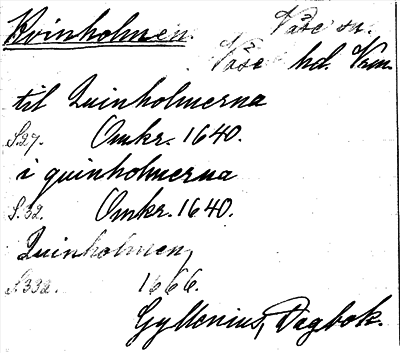 Kvinholmen Väse sn.
Väse hd. Värm.
til Quinholmerna
S.27. Omkr. 1640.
i quinholmerna
S.32. Omkr. 1640.
Quinholmen,
S.332. 1666.
Gyllenius, Dagbok.